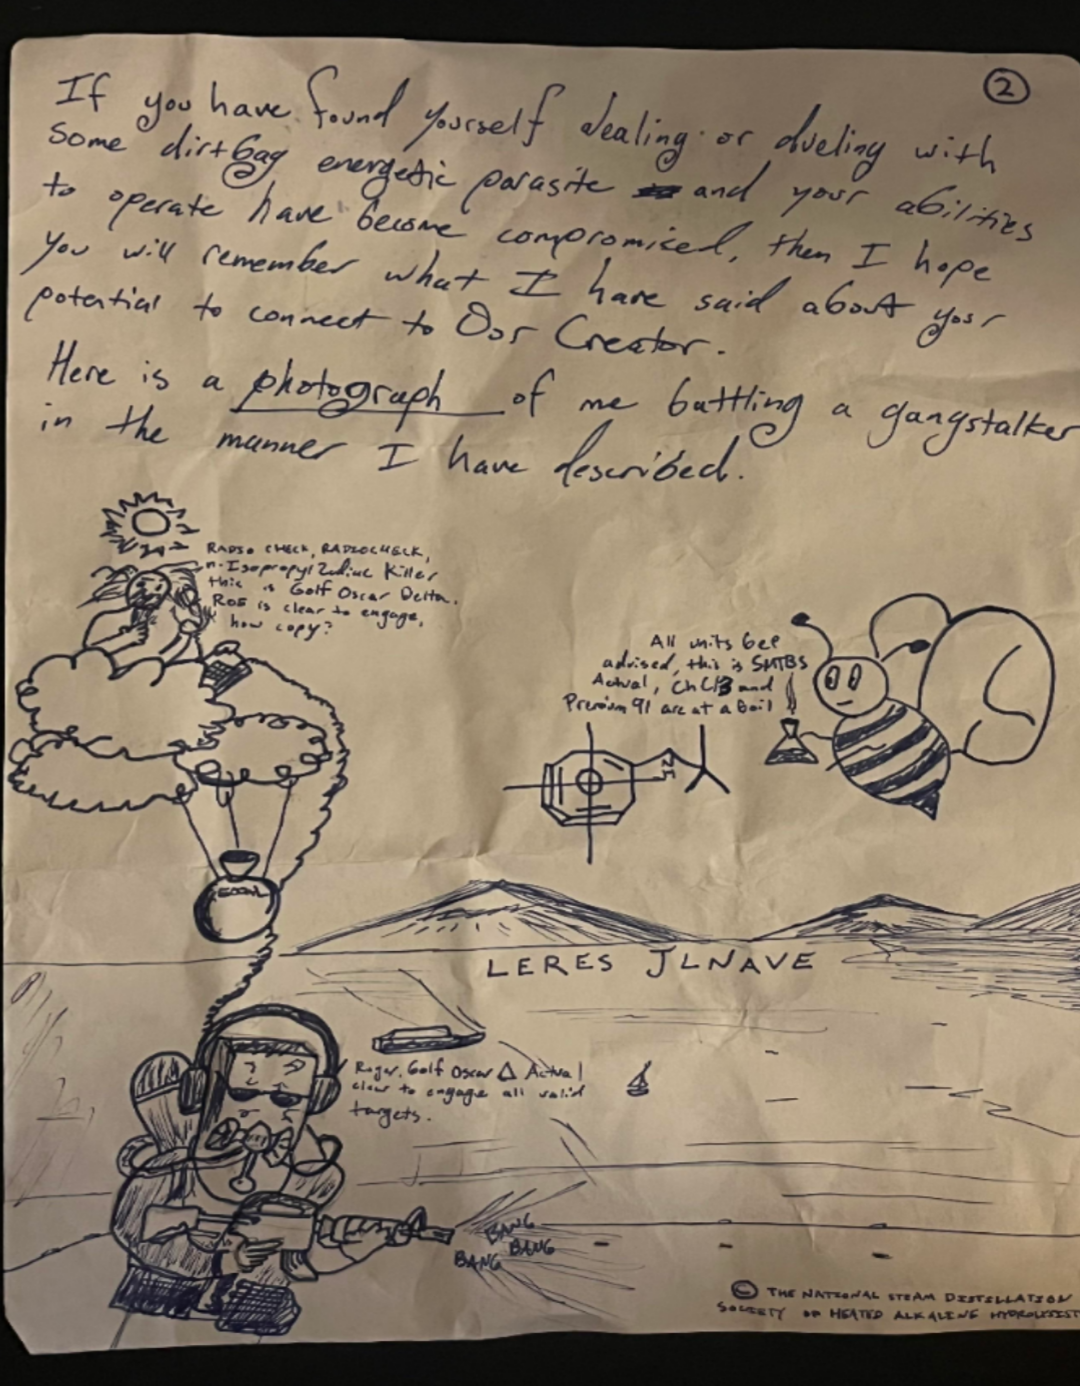 2
If you have found yourself dealing or dueling with
some dirtbag energetic parasite and your abilities
to operate have become compromised, then I hope
you will remember what I have said about your
potential to connect to Our Creator.
Here is a photograph of me battling a gangstalker
in the manner I have described.
RADIO CHECK, RADIOCHECK,
n-Isopropyl Zodiac Killer
this is Golf Oscar Delta.
ROE is clear to engage,
how copy?
All units bee
advised, this is SHTBS
Actual, CHCl3 and
Premium 91 are at a boil
LERES JLNAVE
Roger. Golf Oscar Δ Actual
clear to engage all valid
targets.
BANG
BANG
BANG
© THE NATIONAL STEAM DISTILLATION
SOCIETY OF HEATED ALKALINE